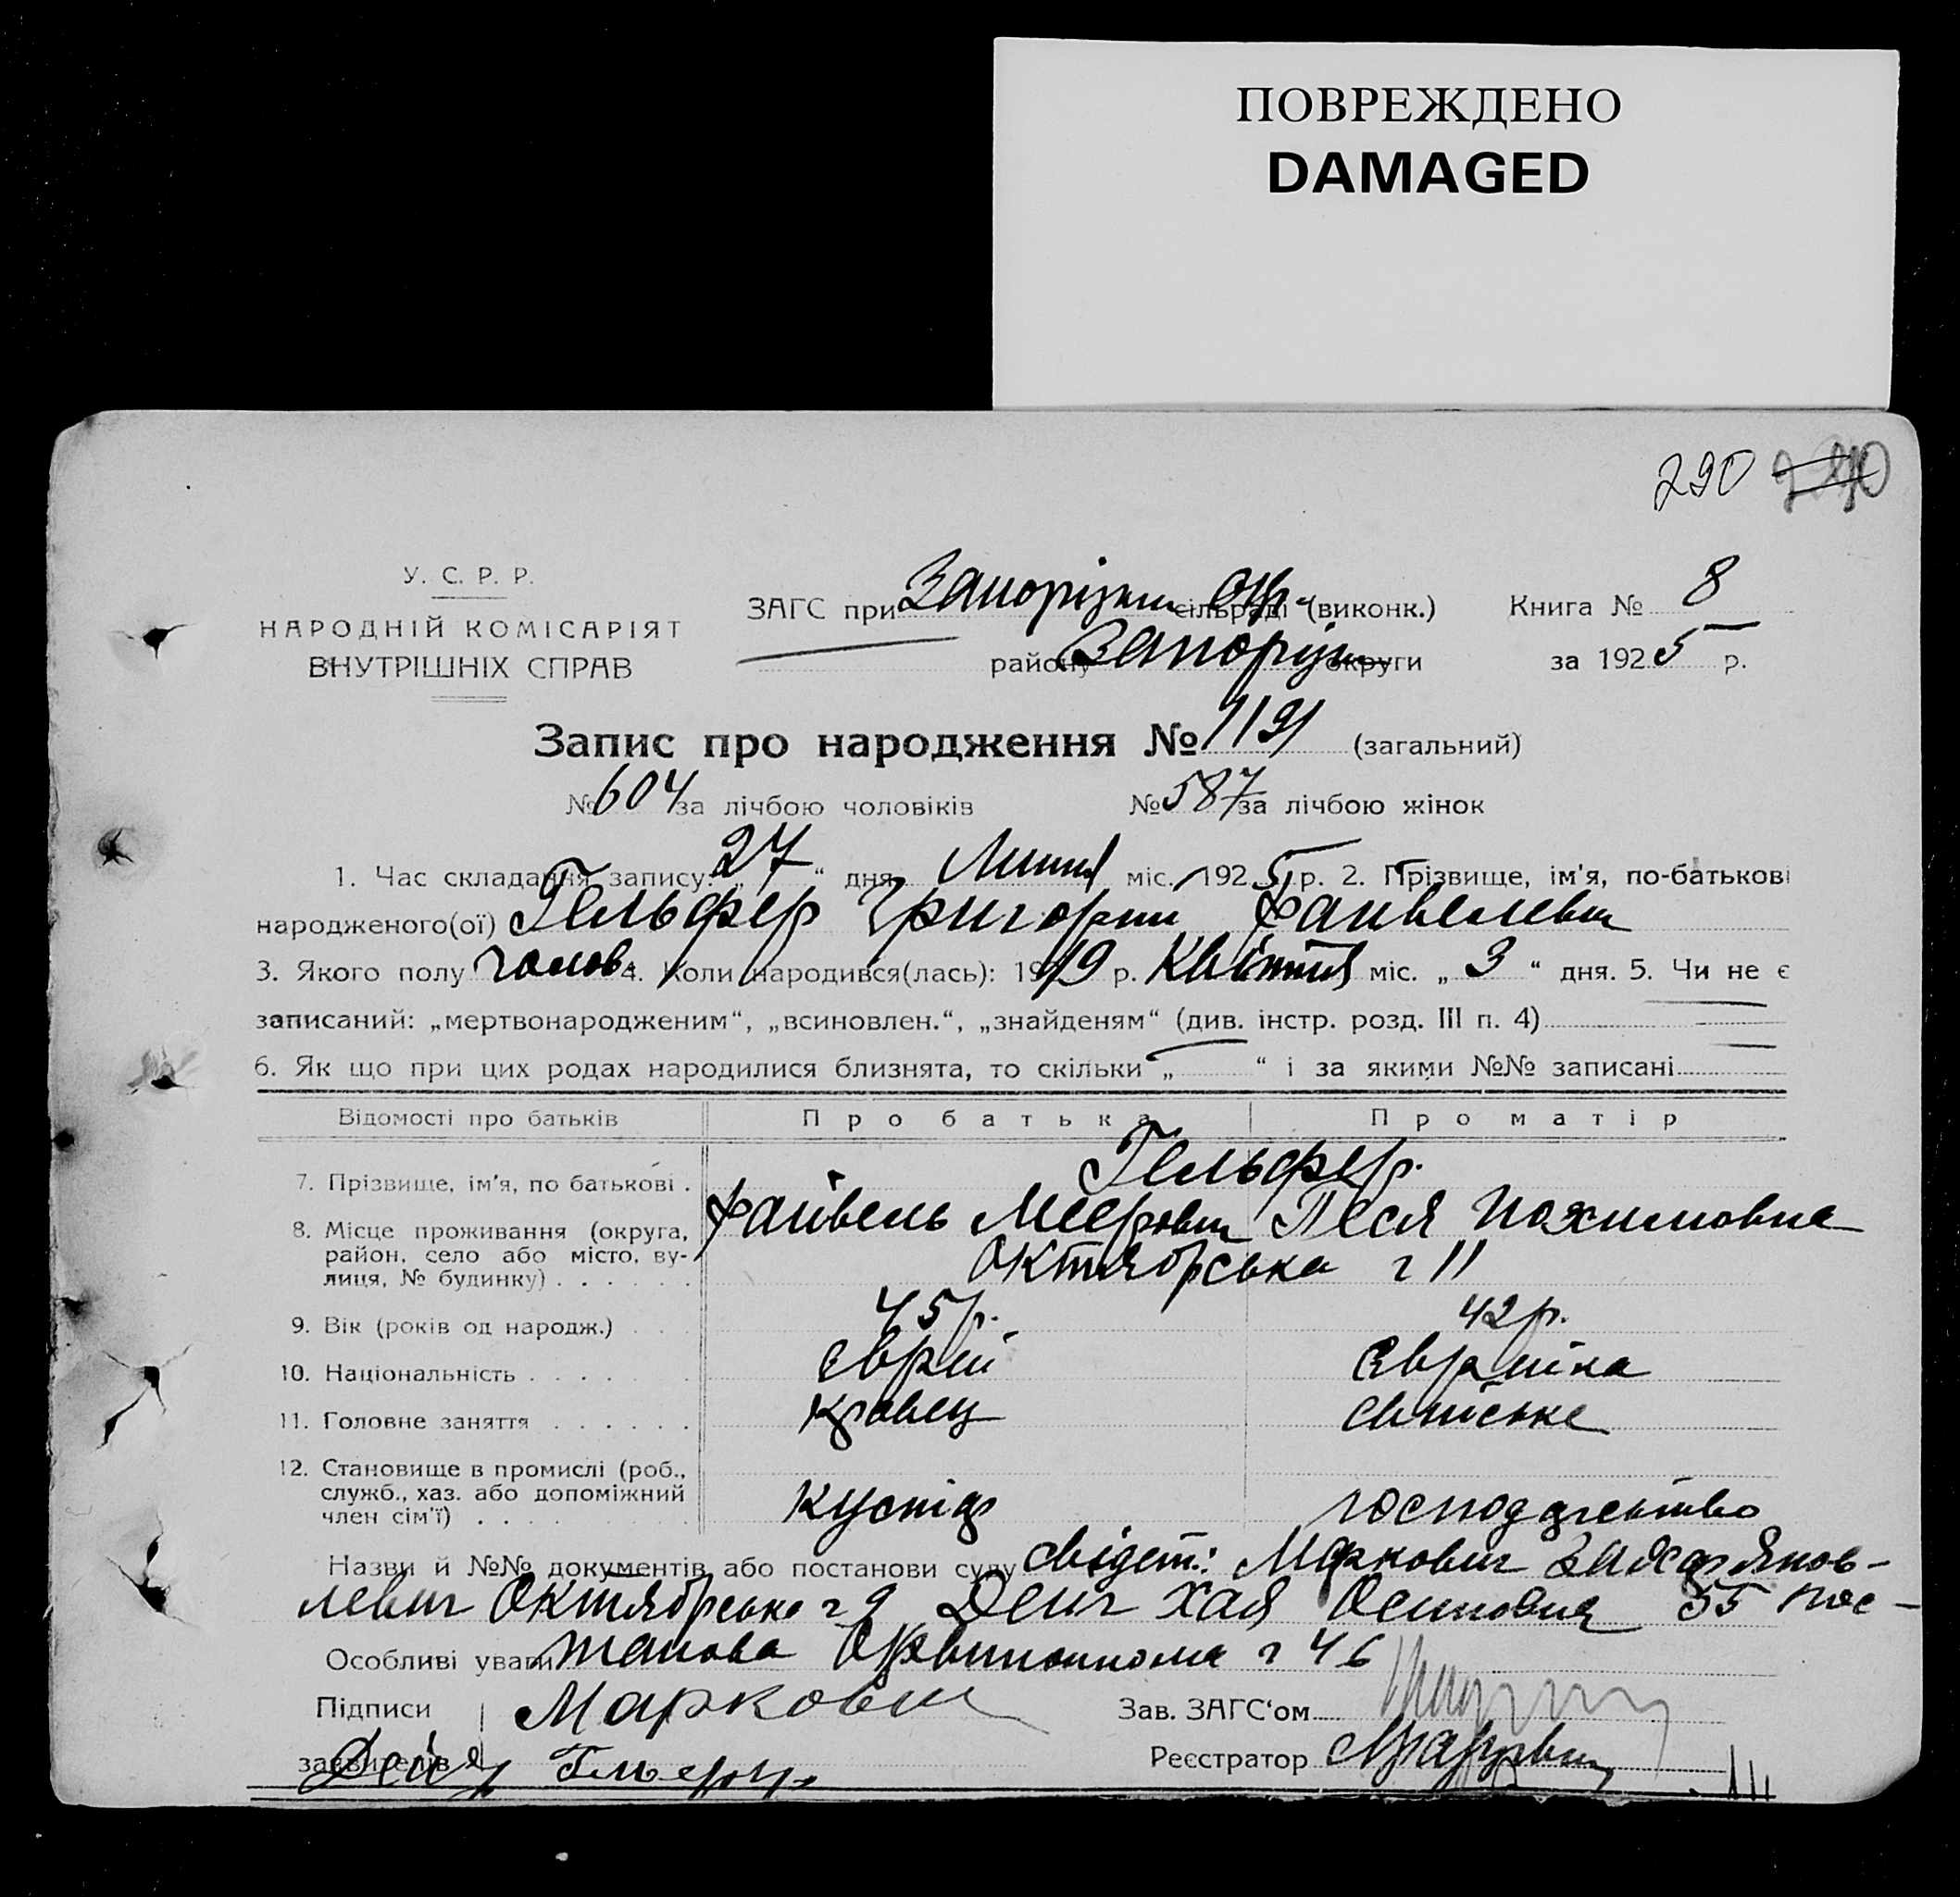 ПОВРЕЖДЕНО
DAMAGED
290
У. С. Р. Р.
НАРОДНІЙ КОМІСАРІЯТ
ВНУТРІШНІХ СПРАВ
ЗАГС при Запорізьк. Окр. сільраді (виконк.)
району Запорізьк. округи
Книга № 8
за 1925 р.
Запис про народження № 1191 (загальний)
№ 604 за лічбою чоловіків № 587 за лічбою жінок
1. Час складання запису: „ 27 “ дня Липня міс. 1925 р. 2. Прізвище, ім'я, по-батькові
народженого(ої) Гельфер Григорий Файвелевич
3. Якого полу чолов. 4. Коли народився(лась): 1919 р. Квітня міс. „ 3 “ дня. 5. Чи не є
записаний: „мертвонародженим“, „всиновлен.“, „знайденям“ (див. інстр. розд. III п. 4)
6. Як що при цих родах народилися близнята, то скільки „ “ і за якими №№ записані
Відомості про батьків Про батька Про матір
7. Прізвище, ім'я, по батькові . Гельфер.
Файвель Меерович Песя
8. Місце проживання (округа,
район, село або місто, ву-
лиця, № будинку) . . . . . . Октябрська ч 11
9. Вік (років од народж.) . . . 45 р. 42 р.
10. Національність . . . . . . . Єврей Єврейка
11. Головне заняття . . . . . . Кравець Свійське
12. Становище в промислі (роб.,
служб., хаз. або допоміжний
член сім'ї) . . . . Кустар господарство
Назви й №№ документів або постанови суду Свідет.: Маркович Яков-
левич Октябрська ч 9 Хая Осиповна 55 пос-
Особливі уваги танова Окрвиконкома ч 46
Підписи
заявителів
Маркович
Зав. ЗАГС‘ом
Реєстратор